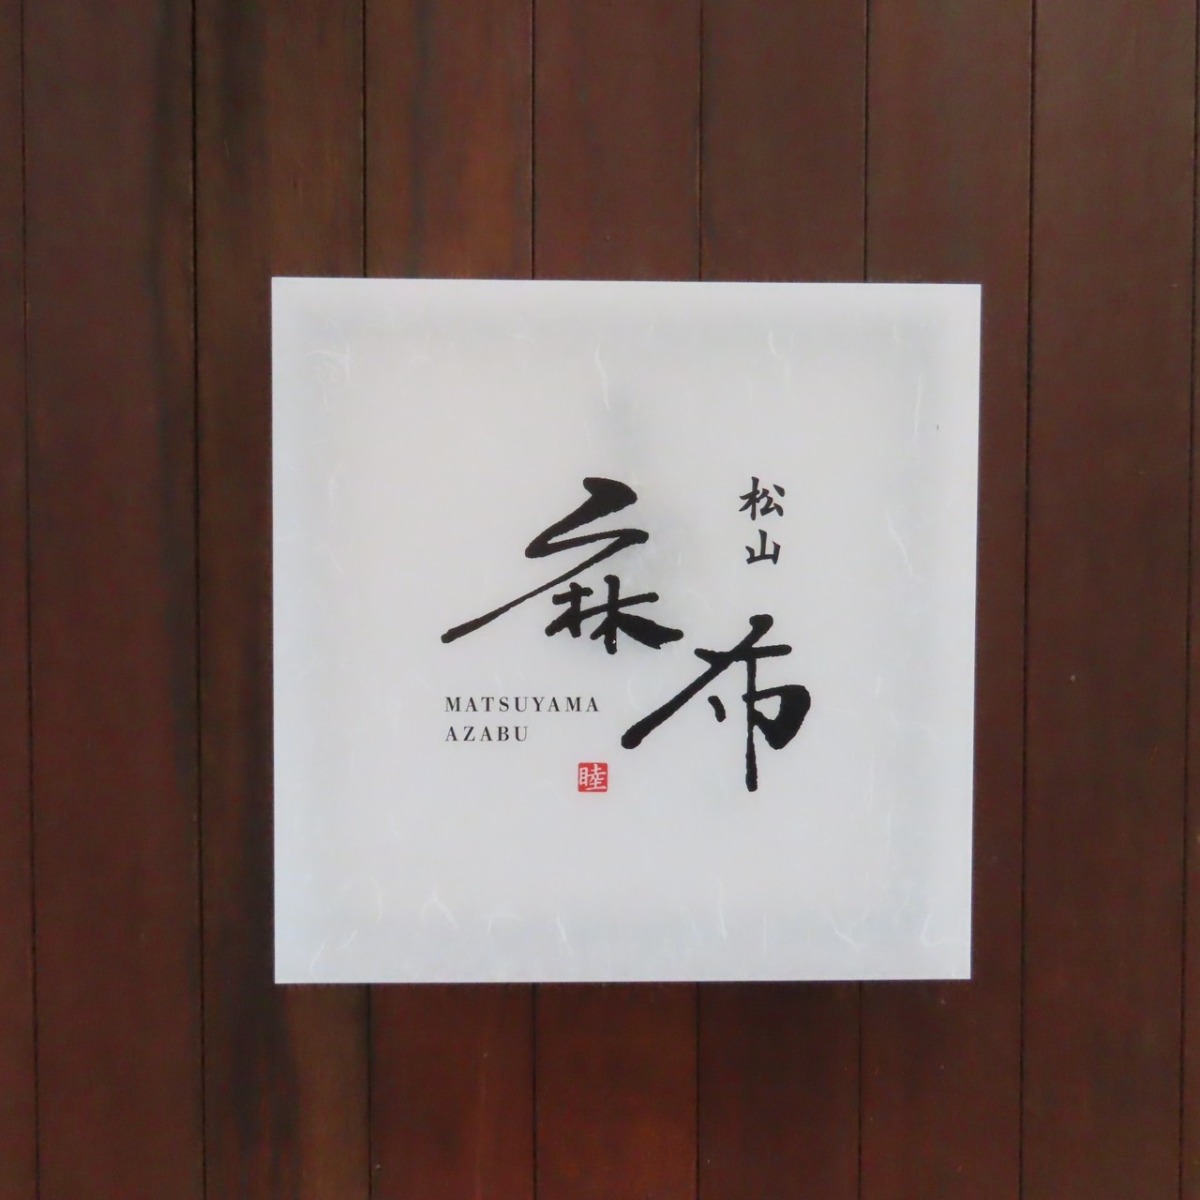 松山
麻布
MATSUYAMA
AZABU
睦